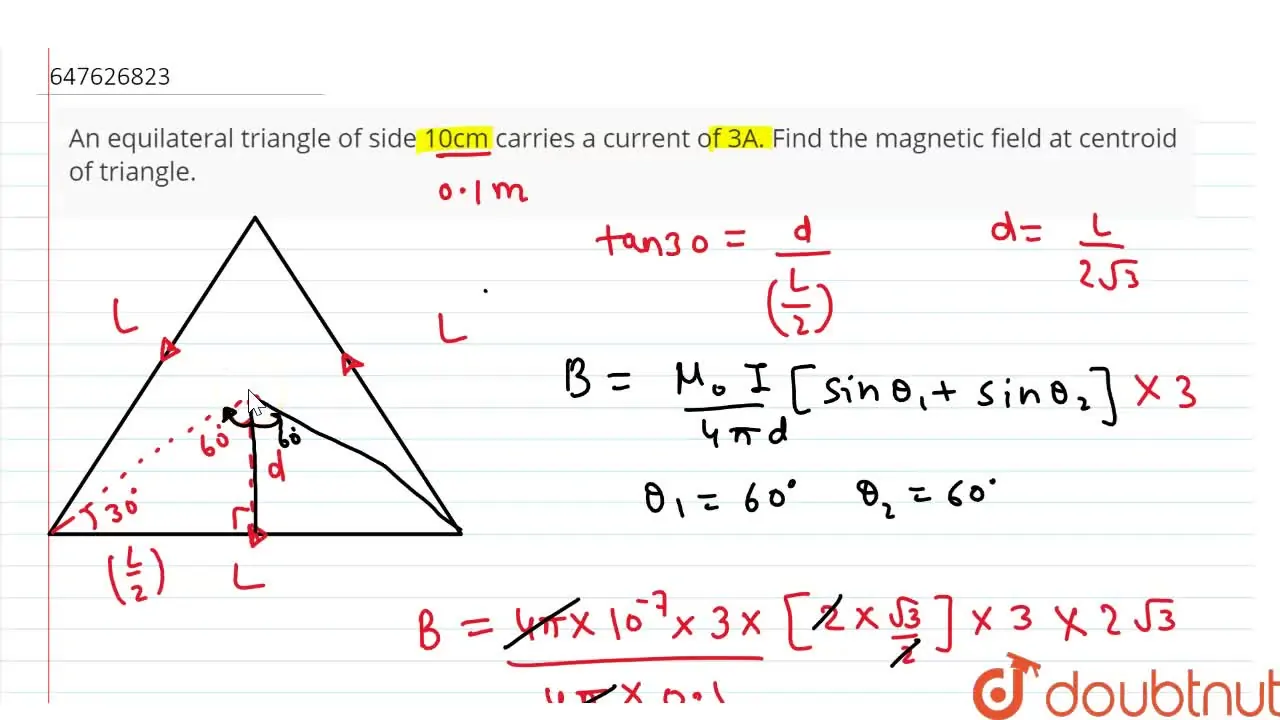 647626823
An equilateral triangle of side 10cm carries a current of 3A. Find the magnetic field at centroid
of triangle.
0.1 m
tan30 = d / (L/2)
d = L / 2√3
L
L
B = μ₀ I / 4πd [sinθ₁ + sinθ₂] × 3
60°
60°
d
30°
θ₁ = 60° θ₂ = 60°
(L/2)
L
B = 4π × 10⁻⁷ × 3 × [2 × √3/2] × 3 × 2√3
4π × 0.1
doubtnut